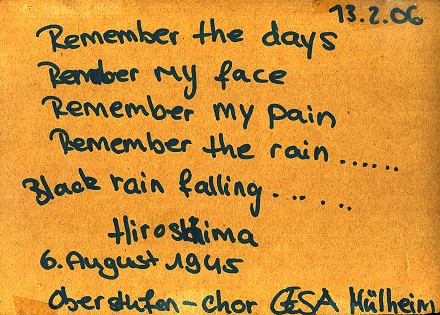 13.2.06
Remember the days
Remember my face
Remember my pain
Remember the rain ......
Black rain falling .. . ..
Hiroshima
6. August 1945
Oberstufen-chor GESA Mülheim